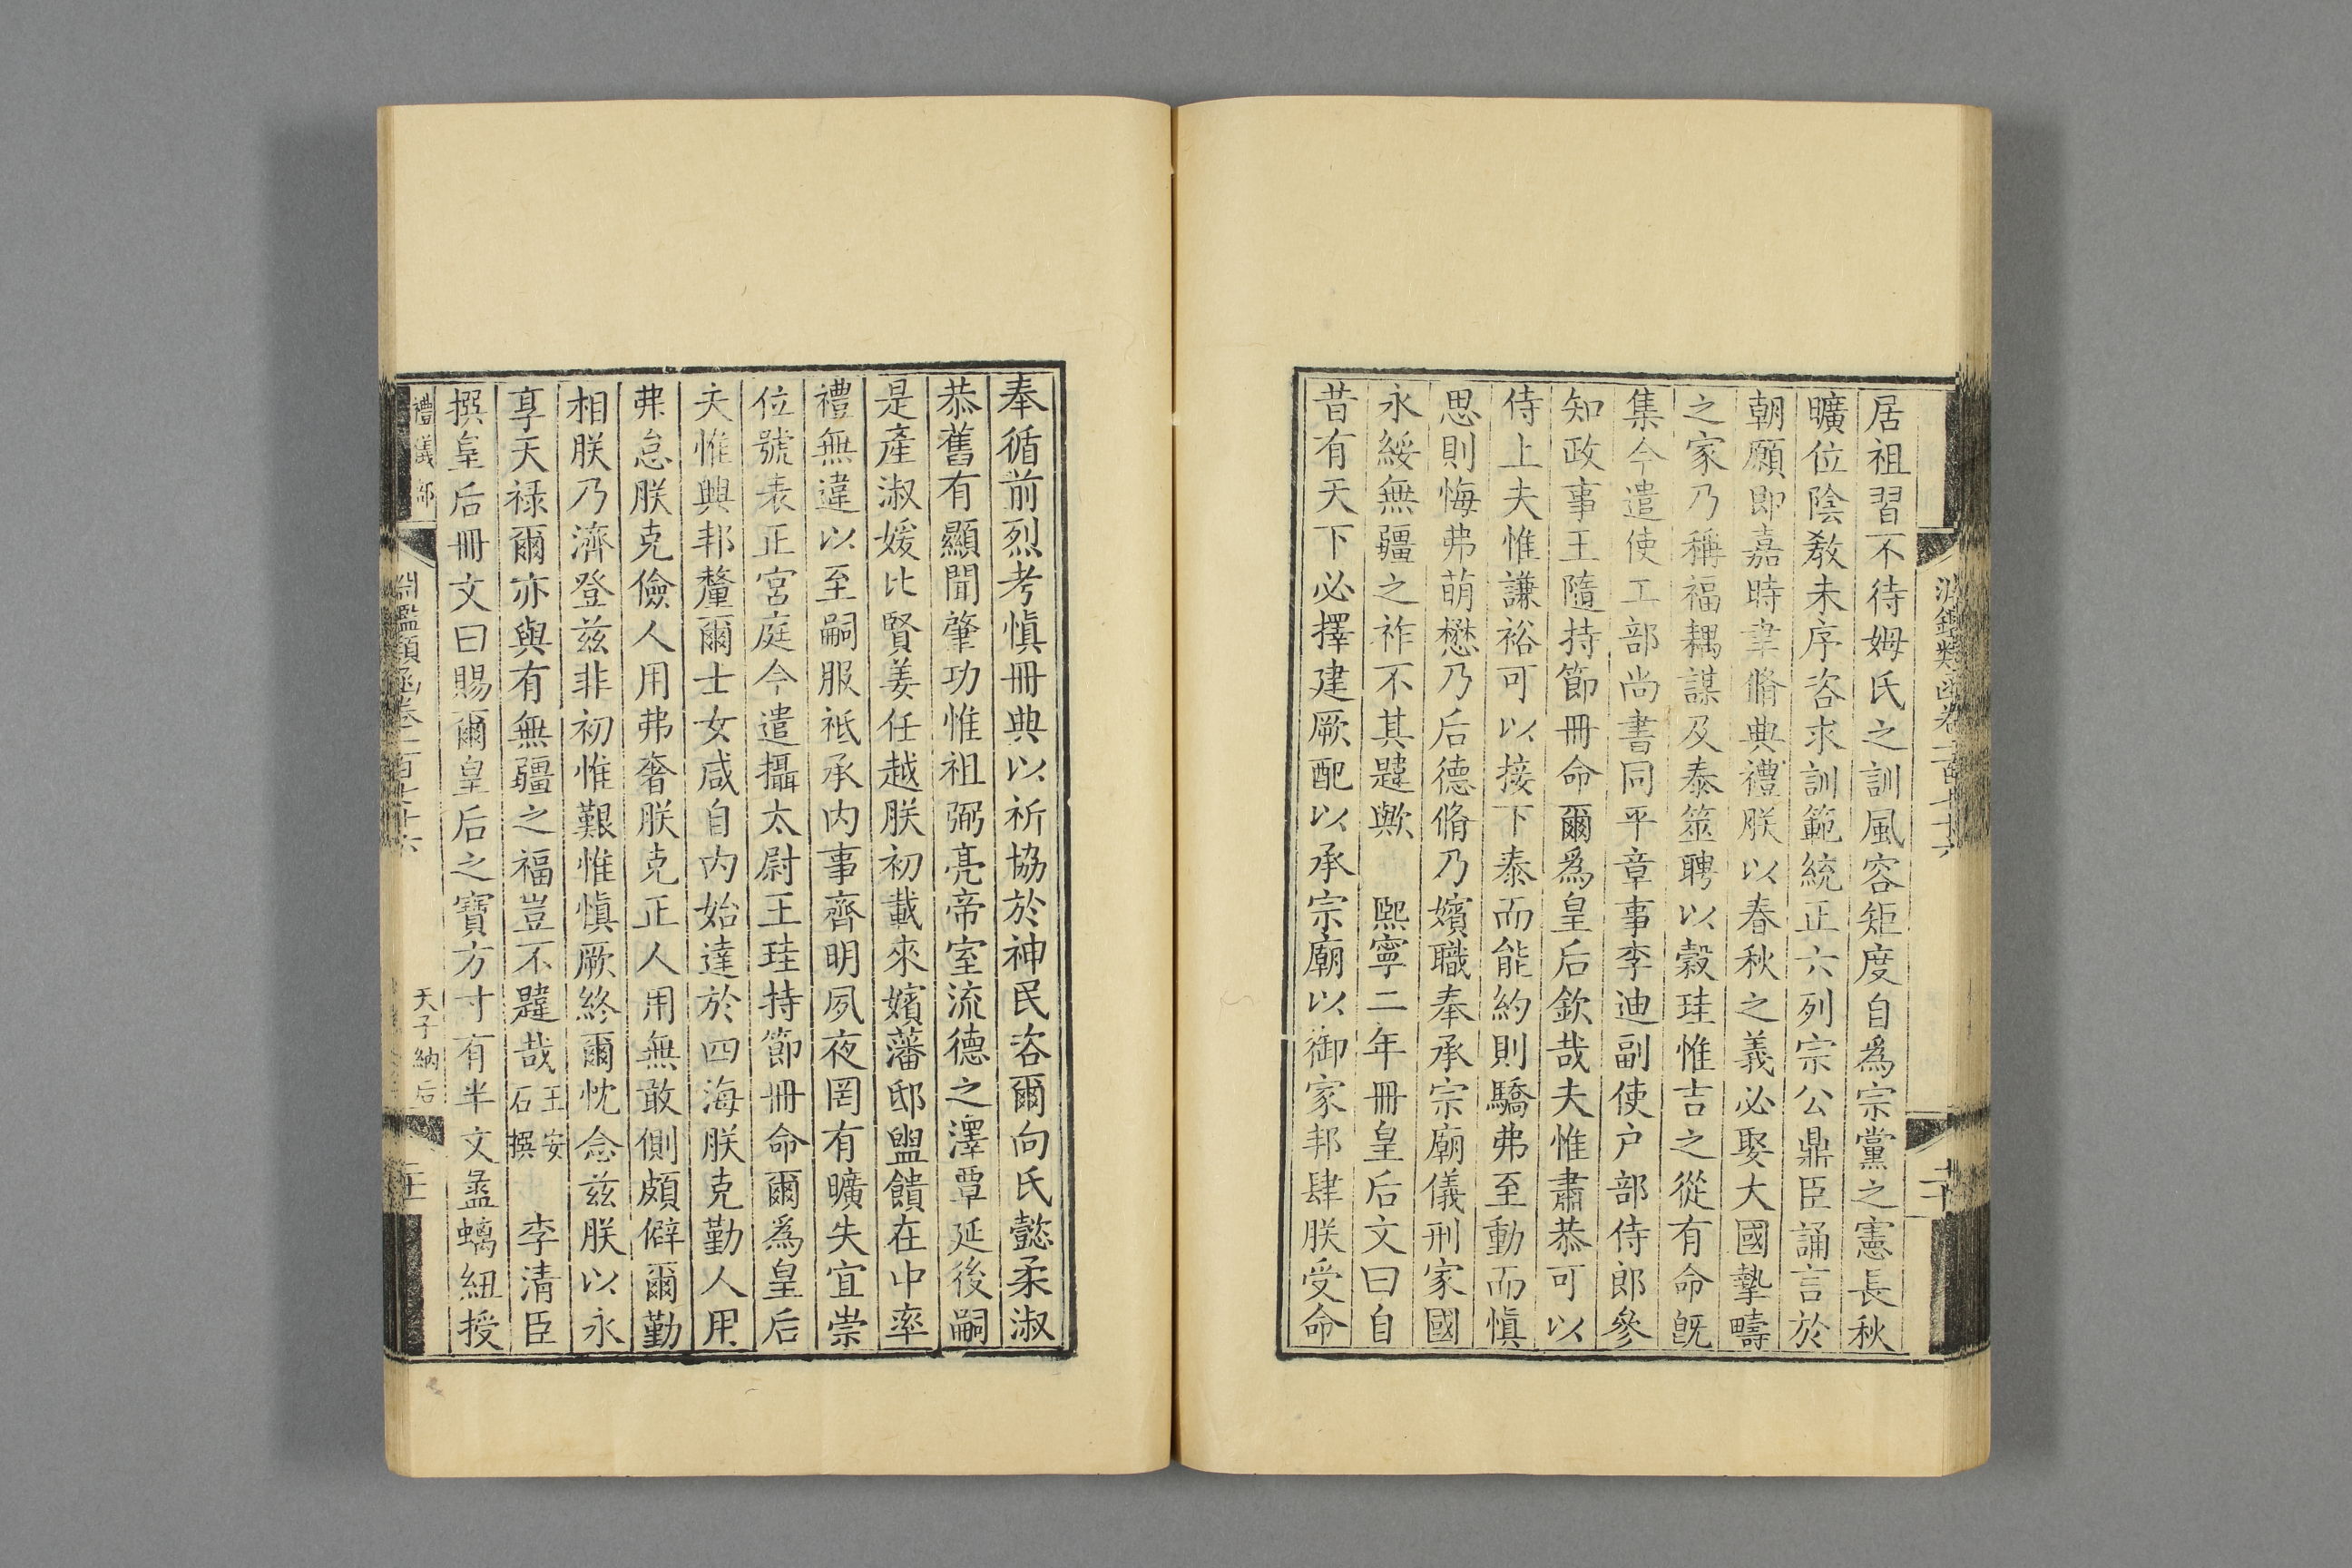 居祖習不待姆氏之訓風容矩度自爲宗黨之憲長秋
曠位陰教未序咨求訓範統正六列宗公鼎臣誦言於
朝願即嘉時聿脩典禮朕以春秋之義必娶大國摯疇
之家乃稱福耦謀及泰筮聘以榖珪惟吉之從有命旣
集今遣使工部尚書同平章事李迪副使户部侍郎參
知政事王隨持節冊命爾爲皇后欽哉夫惟肅恭可以
侍上夫惟謙裕可以接下泰而能約則驕弗至動而愼
思則悔弗萌懋乃后德脩乃嬪職奉承宗廟儀刑家國
永綏無疆之祚不其韙歟　熙寧二年冊皇后文曰自
昔有天下必擇建厥配以承宗廟以御家邦肆朕受命
奉循前烈考愼冊典以祈協於神民咨爾向氏懿柔淑
恭舊有顯聞肇功惟祖弼亮帝室流德之澤覃延後嗣
是產淑媛比賢姜任越朕初載來嬪藩邸盥饋在中率
禮無違以至嗣服祗承内事齊明夙夜罔有曠失宜崇
位號表正宮庭今遣攝太尉王珪持節冊命爾爲皇后
夫惟興邦釐爾士女咸自内始達於四海朕克勤人用
弗怠朕克儉人用弗奢朕克正人用無敢側頗僻爾勤
相朕乃濟登兹非初惟艱惟愼厥終爾忱念兹朕以永
享天禄爾亦與有無疆之福豈不韙哉王安石撰　李清臣
撰皇后冊文曰賜爾皇后之寶方寸有半文盝螭紐授
禮儀部
淵鑑類函卷一百七十六
天子納后